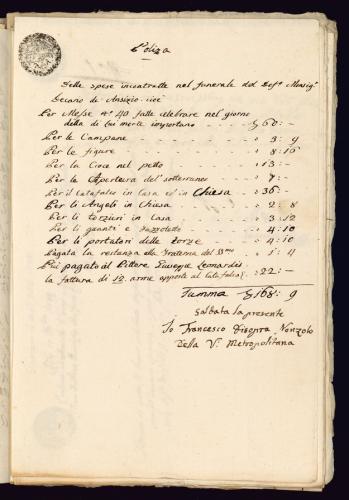 Poliza
Delle spese incontratte nel funerale del Defto Monsigr
Decano de Ansizio cioè
Per Messe No 40 fatte celebrare nel giorno
della di lui morte importano - - - - 60:-
Per le Campane - - - - 3:9
Per le figure - - - - 8:16
Per la Croce nel petto - - - - 13:-
Per la Apertura del sotterraneo - - 7:-
Per il catafalco in Casa ed in Chiesa - - 36:-
Per li Angeli in Chiesa - - - - 2:8
Per li torzieri in Casa - - - - 3:12
Per li guanti e Fazzoletto - - - - 4:10
Per li portatori delle torze - - - - 4:10
Pagata la restanza alla Fraterna del SSmo - - 1:4
Più pagato al Pittore Giuseppe Leonardis
la fattura di 12 arme apposte al Catafalco 22:-
Summa 168:9
Saldata la presente
Io Francesco Dragogna Nonzolo
della Va Metropolitana